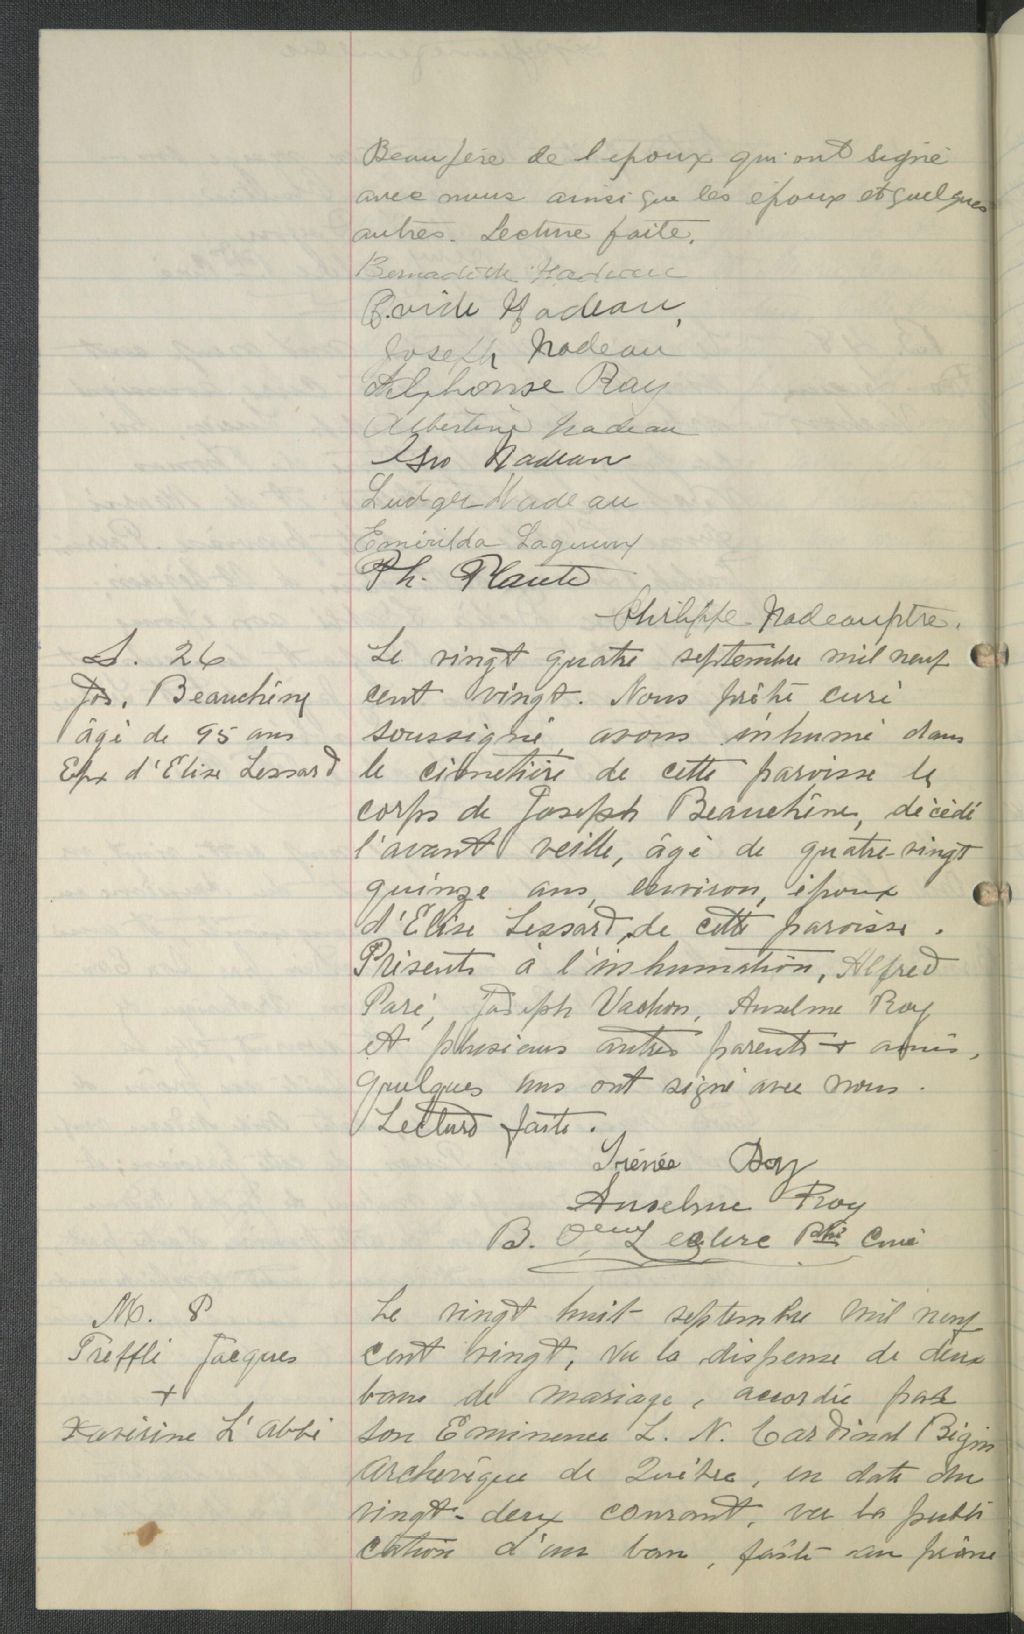 Beaufère de l'époux qui ont signé
avec nous ainsi que les époux et quelques
autres. Lecture faite.
Bernadette Nadeau
Ovide Nadeau,
Joseph Nadeau
Alphonse Roy
Albertine Nadeau
Nadeau
Ludger Nadeau
Emérilda Lagueux
Ph. Plante
Philippe Nadeau ptre.
S. 26
Jos. Beauchêne
âgé de 95 ans
Epx d'Elise Lessard
Le vingt quatre septembre mil neuf
cent vingt. Nous prêtre curé
soussigné, avons inhumé dans
le cimetière de cette paroisse le
corps de Joseph Beauchêne, décédé
l'avant veille, âgé de quatre-vingt
quinze ans, environ, époux
d'Elise Lessard, de cette paroisse.
Présents à l'inhumation, Alfred
Paré, Joseph Vachon, Anselme Roy
et plusieurs autres parents + amis,
quelques uns ont signé avec nous.
Lecture faite.
Irénée Roy
Anselme Roy
B. Leclerc Ptre Curé
M. 8
Treffli Jacques
+
Xavérine L'abbé
Le vingt huit septembre mil neuf
cent vingt, vu la dispense de deux
bans de mariage, accordée par
Son Eminence L. N. Cardinal Bégin
Archevêque de Québec, en date du
vingt-deux courant, vu la publi
cation d'un ban, faite au prône